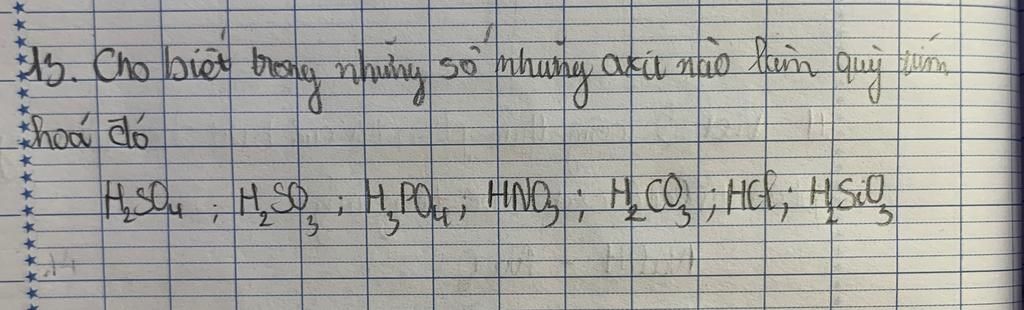 13. Cho biết trong những số những axit nào làm quỳ tím
hoá đỏ
H₂SO₄ ; H₂SO₃ ; H₃PO₄ ; HNO₃ ; H₂CO₃ ; HCl ; H₂SiO₃